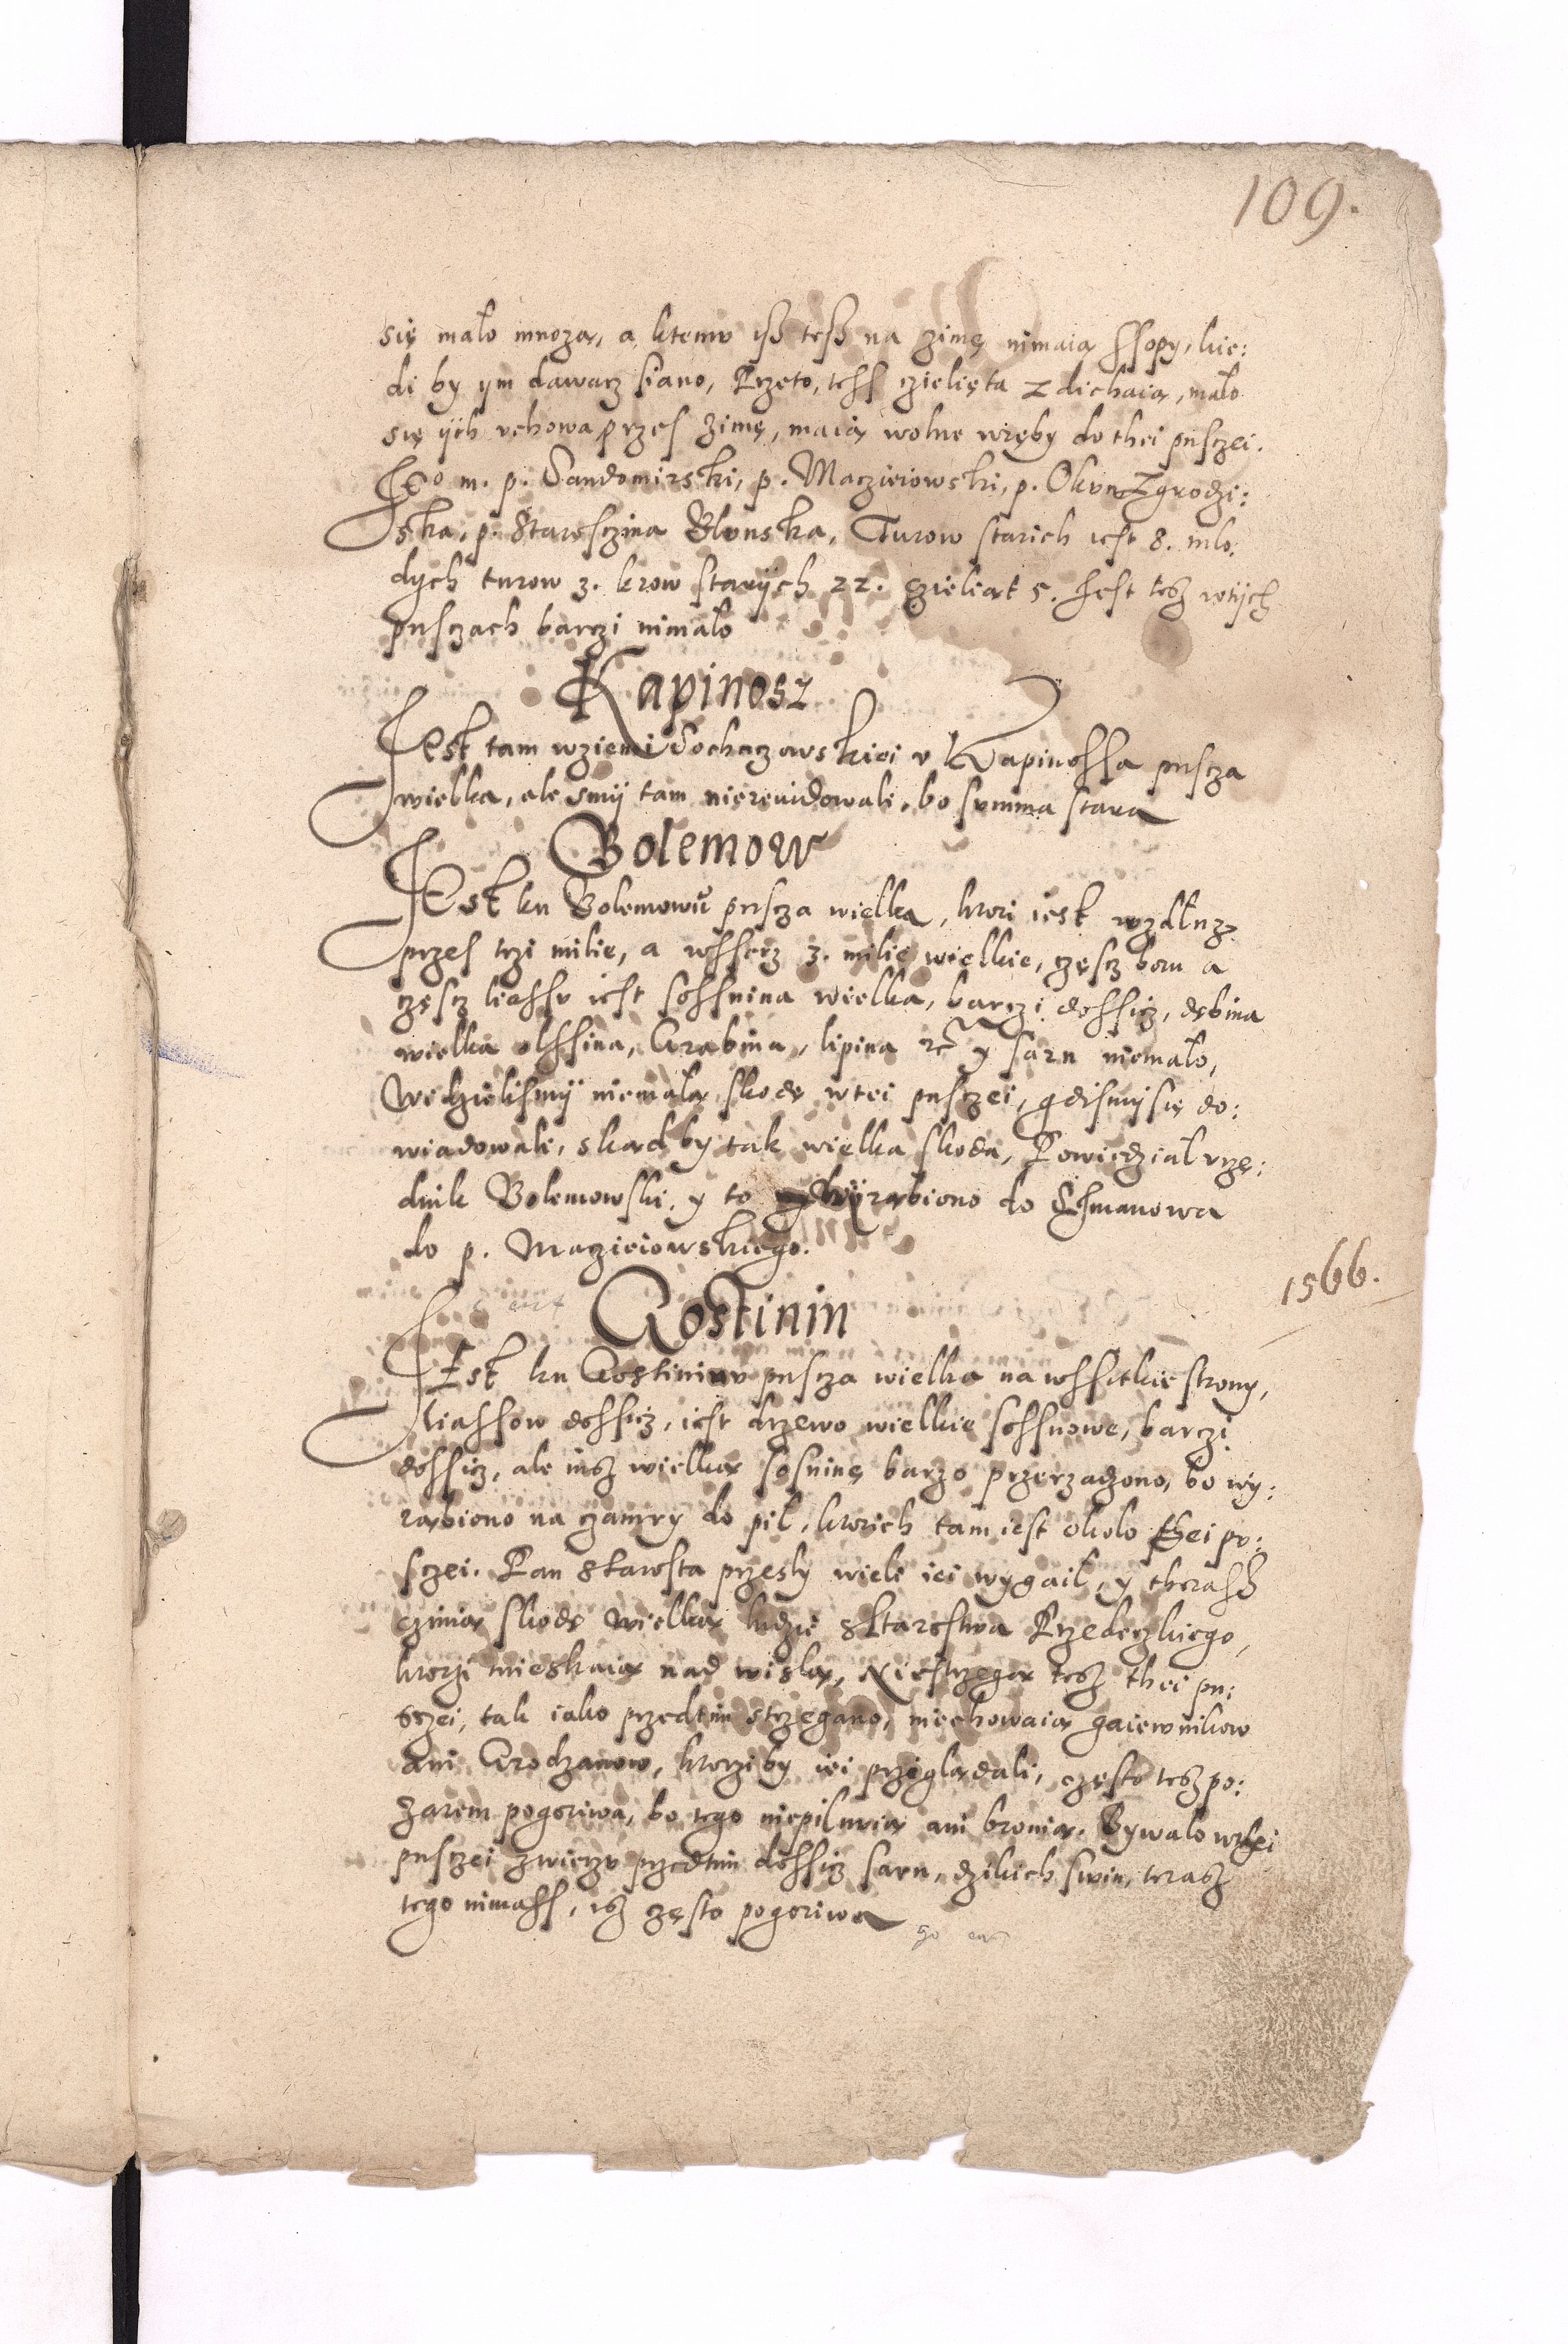 109.
się mało mnożą, a ktemu iß teß na zimę nimaią ssopy, kie:
di by ym dawacz siano, Przeto, tess cielięta zdichaią, mało
się ijch uchowa przes zimę, maią wolne wręby do thei pusczei.
Jeo m. p. Sandomirski, p. Macieiowski, p. Okun Zgrodzi:
ska, p. Starosczina Blonska, Turow starich iest 8. mlo:
dych turow 3. krow starijch 22. cieliąt 5. Jest tesz wtijch
pusczach barzi nimało
Kapinosz
Jest tam wziemi Sochaczowskiei v Kapinossa puscza
wielka, ale smij tam nierevidowali, bo summa stara
Bolemow
JEst ku Bolemowu puscza wielka, ktori iest wzdłuz
przes trzi milie, a wsserz 3. milie wielkie, częscz boru a
częscz liessu iest sossnina wielka, barzi dossicz, dębina
wielka olssina, Grabina, lipina etc y sarn niemało,
Widzielismij niemałą skodę wtei pusczei, gdismij się do:
wiadowali, skąd by tak wielka skoda, Powiedział urzę:
dnik Bolemowski, y to wijrąbiono do Osmanowa
do p. Maczieiowskiego.
1566.
Gostinin
JEst ku Gostininu puscza wielka na wssitkie strony,
liassow dossicz, iest drzewo wielkie sossnowe, barzi
dossicz, ale iusz wielką sosninę barzo przerzadzono, bo wy:
rąbiono na czamry do pil, ktorich tam iest około thei pu:
sczei. Pan starosta przesly wieli iei wygail, y therasz
czinią skodę wielką ludzie starostwa Przedeczkiego,
ktorzi mieskaią nad wislą, Niestrzegą tesz thei pu:
sczei, tak iako przedtim strzegano, niechowaią gaiewnikow
ani Grodzanow, ktorzi by iei przigladali, często tesz po:
zarem pogoriwa, bo tego niepilnuią ani bronią. Bywało wthei
pusczei zwierzu przedtim dossicz sarn, dzikich swin, terasz
tego nimass, isz często pogoriwa